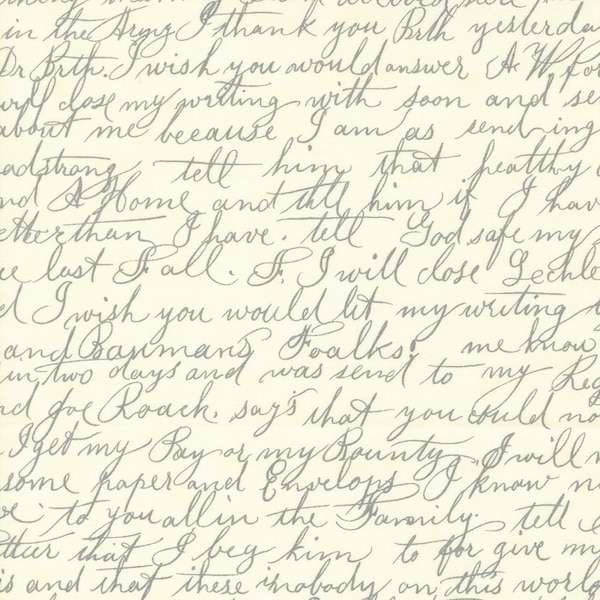 in the Army I thank you Brth yesterda
Dr Brth. I wish you would answer A W. for
will close my writing with soon and se
about me because I am as send ing
adstrong tell him that healthy
nd A Home and till him if I hav
etter than I have. tell God safe my
ce last F all. F. I will close Lechle
d I wish you would lit my writing
and Bauman's Foalks. me know
in two days and was send to my Reg
nd Joe Roack. say's that you could no
I get my Pay or my Bounty I will
some paper and Envelops I know n
ve to you all in the Family. tell
etter that I beg him to for give m
is and that these inobody on this world